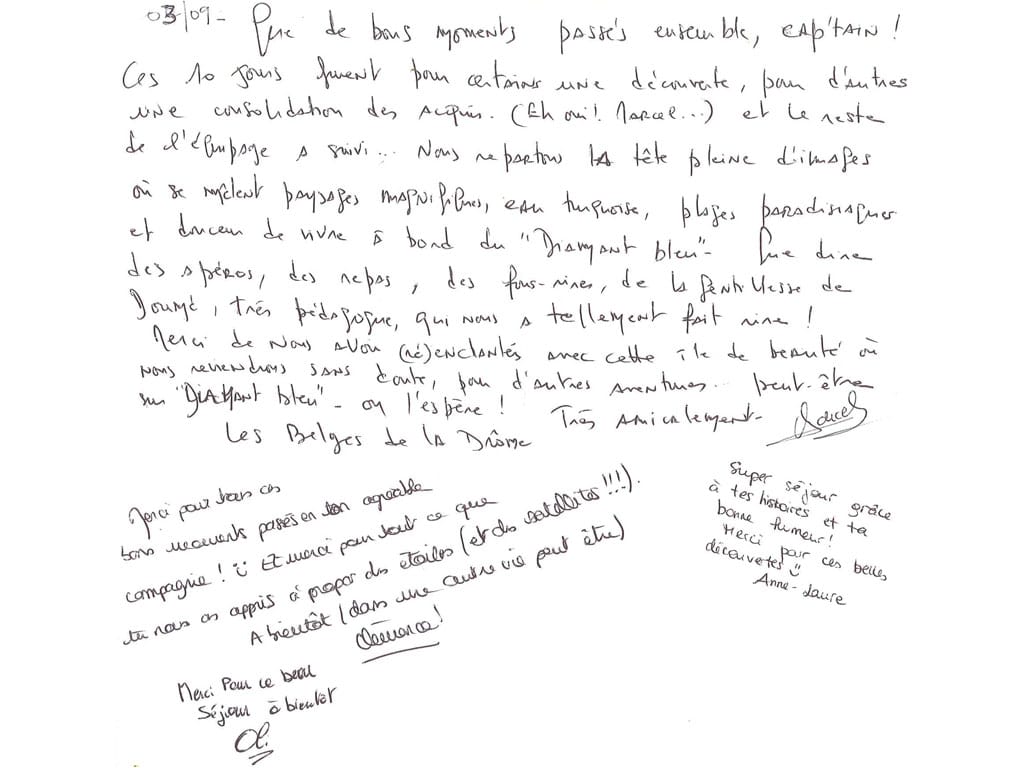 03/09 - Que de bons moments passés ensemble, CAP'TAIN !
Ces 10 jours furent pour certains une découverte, pour d'autres
une consolidation des acquis. (Eh oui! Marcel...) et le reste
de l'équipage a suivi... Nous repartons la tête pleine d'images
où se mêlent paysages magnifiques, eau turquoise, plages paradisiaques
et douceur de vivre à bord du "Diamant bleu" - Que dire
des apéros, des repas, des fous-rires, de la gentillesse de
Doumé, très pédagogue, qui nous a tellement fait rire !
Merci de nous avoir (ré)enchantés avec cette île de beauté où
nous reviendrons sans doute, pour d'autres aventures... peut-être
sur "Diamant bleu" - on l'espère ! Très amicalement -
Les Belges de la Drôme
Merci pour tous ces
bons moments passés en ton agréable
compagnie ! Et merci pour tout ce que
tu nous as appris à propos des étoiles (et des satellites !!!).
A bientôt (dans une autre vie peut être)
Clémence !
Super séjour grâce
à tes histoires et ta
bonne humeur !
Merci pour ces belles
découvertes
Anne-Laure
Merci Pour ce beau
Séjour à bientôt